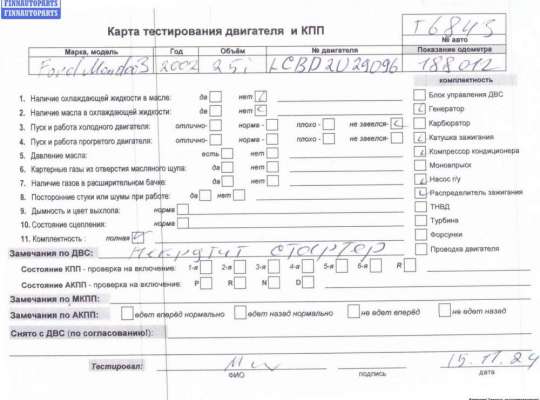 FINNAUTOPARTS
FINNAUTOPARTS
Карта тестирования двигателя и КПП
T6843
№ авто
Марка, модель Год Объём № двигателя Показание одометра
Ford Mondeo3 2002 2.5i LCBD2U29096 188012
комплектность
1. Наличие охлаждающей жидкости в масле: да нет
2. Наличие масла в охлаждающей жидкости: да нет
3. Пуск и работа холодного двигателя: отлично- норма - плохо - не завелся-
4. Пуск и работа прогретого двигателя: отлично- норма - плохо - не завелся-
5. Давление масла: есть нет
6. Картерные газы из отверстия масляного щупа: да нет
7. Наличие газов в расширительном бачке: да нет
8. Посторонние стуки или шумы при работе: да нет
9. Дымность и цвет выхлопа: норма
10. Состояние сцепления: норма
11. Комплектность : полная
Блок управления ДВС
Генератор
Карбюратор
Катушка зажигания
Компрессор кондиционера
Моновпрыск
Насос г/у
Распределитель зажигания
ТНВД
Турбина
Форсунки
Проводка двигателя
Замечания по ДВС: Не крутит стартер
Состояние КПП - проверка на включение: 1-я 2-я 3-я 4-я 5-я 6-я R
Состояние АКПП - проверка на включение: P R N D
Замечания по МКПП:
Замечания по АКПП: едет вперёд нормально едет назад нормально не едет вперёд не едет назад
Снято с ДВС (по согласованию!):
Тестировал: 15.11.24
ФИО подпись дата